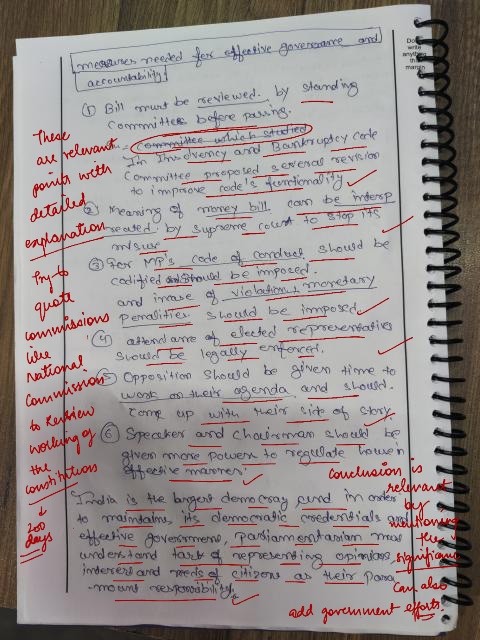 measures needed for effective governance and
accountability.
Don't
write
anything
this
margin
① Bill must be reviewed by standing
Committee before passing.
committee which studied
In Insolvency and Bankruptcy code
Committee proposed several revision
to improve code's functionality
② Meaning of money bill can be interp
reated by supreme court to stop its
misuse
③ For MP's code of conduct should be
codified should be imposed.
and incase of violations monetary
penalities should be imposed.
④ attendance of elected representatives
should be legally enforced.
⑤ Opposition should be given time to
work on their agenda and should
come up with their side of story
⑥ Speaker and Chairman should be
given more powers to regulate house in
effective manner.
India is the largest democracy and in order
to maintain its democratic credentials and
effective government, parliamentarian must
understand task of representing opinions,
interest and needs of citizens as their para
-mount responsibility.
These
are relevant
points with
detailed
explanation
Try to
quote
commissions
like
National
Commission
to Review
working of
the
constitutions
↓
200
days
conclusion is
relevant
by
mentioning
the
significance
can also
add government efforts.